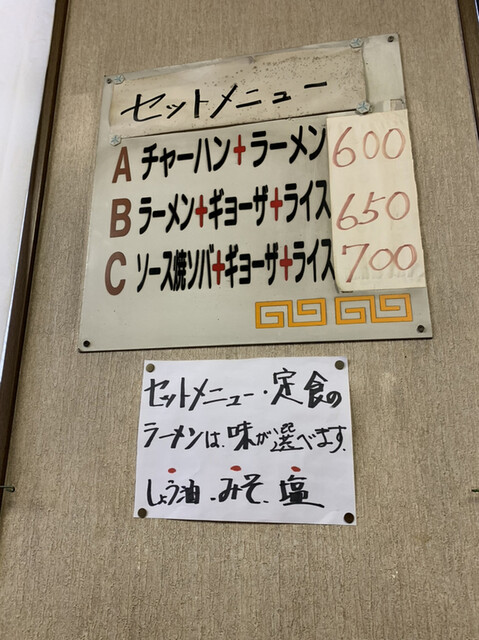 セットメニュー
A チャーハン+ラーメン 600
B ラーメン+ギョーザ+ライス 650
C ソース焼ソバ+ギョーザ+ライス 700
セットメニュー・定食の
ラーメンは、味が選べます。
しょう油、みそ、塩